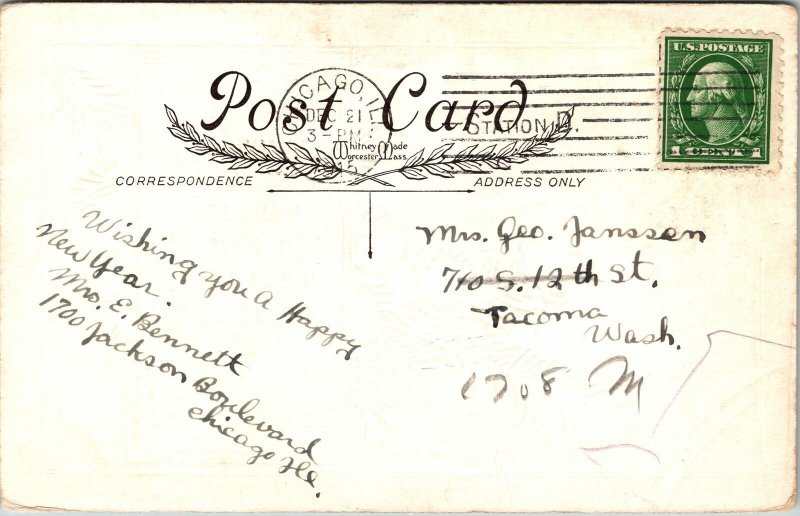 Post Card
CHICAGO, ILL.
DEC 21
3 - PM
15
STATION
Whitney Made
Worcester, Mass
U.S. POSTAGE
1 CENT 1
CORRESPONDENCE
ADDRESS ONLY
Wishing you a Happy
New Year.
Mrs. E. Bennett
1700 Jackson Boulevard
Chicago Ill.
Mrs. Geo. Janssen
710 S. 12th St.
Tacoma
Wash.
1708 M